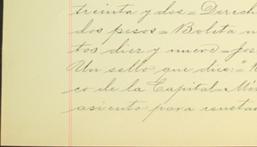 treinta y dos = Derech
dos pesos = Boleta n
tos diez y nueve = Jos
Un sello que dice: "
co de la Capital = Mé
asiento para constan